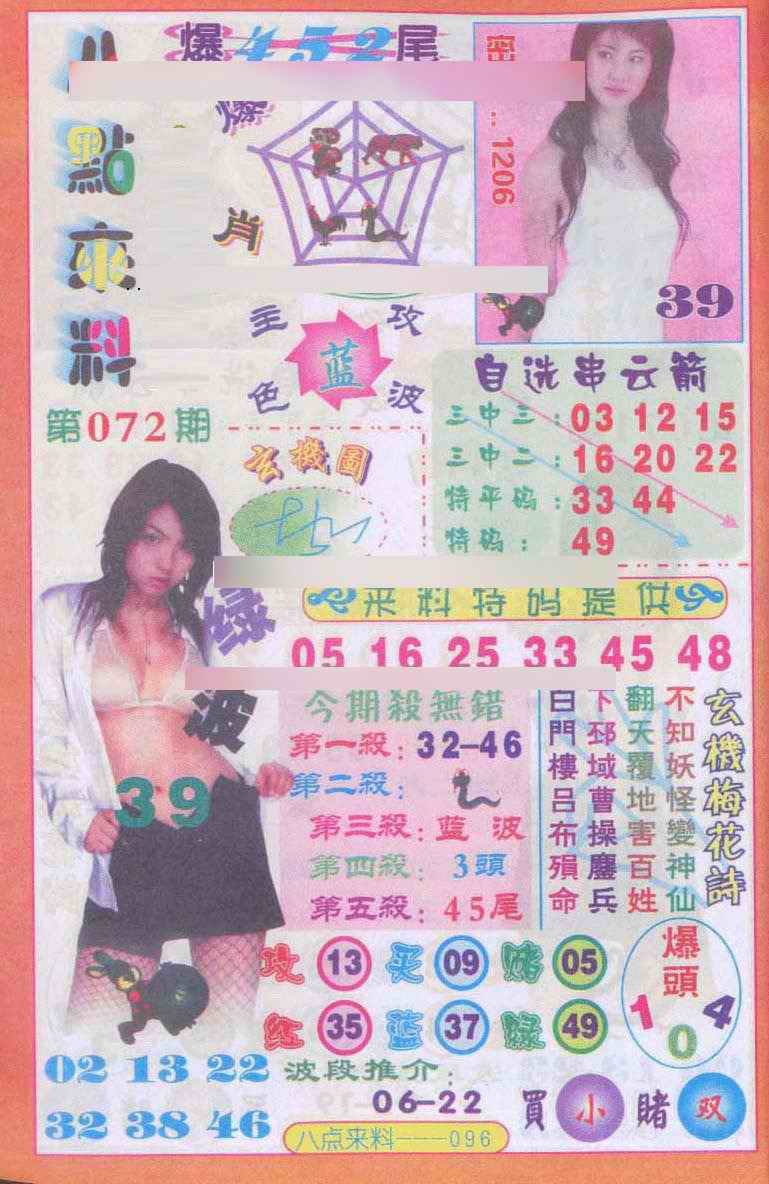 八點來料
爆452尾
爆肖
1206
39
主攻
色波
蓝
第072期
玄機圖
自选串云箭
三中三：03 12 15
三中二：16 20 22
特平码：33 44
特码：49
来料特码提供
05 16 25 33 45 48
绿波
39
今期殺無錯
第一殺：32-46
第二殺：
第三殺：蓝波
第四殺：3頭
第五殺：45尾
玄機梅花詩
不知妖怪變神仙
翻天覆地害百姓
下邳域曹操鏖兵
白門樓吕布殞命
攻 13 买 09 赌 05
红 35 蓝 37 绿 49
爆頭
1 0 4
02 13 22
32 38 46
波段推介：
06-22
買小賭双
八点来料---096